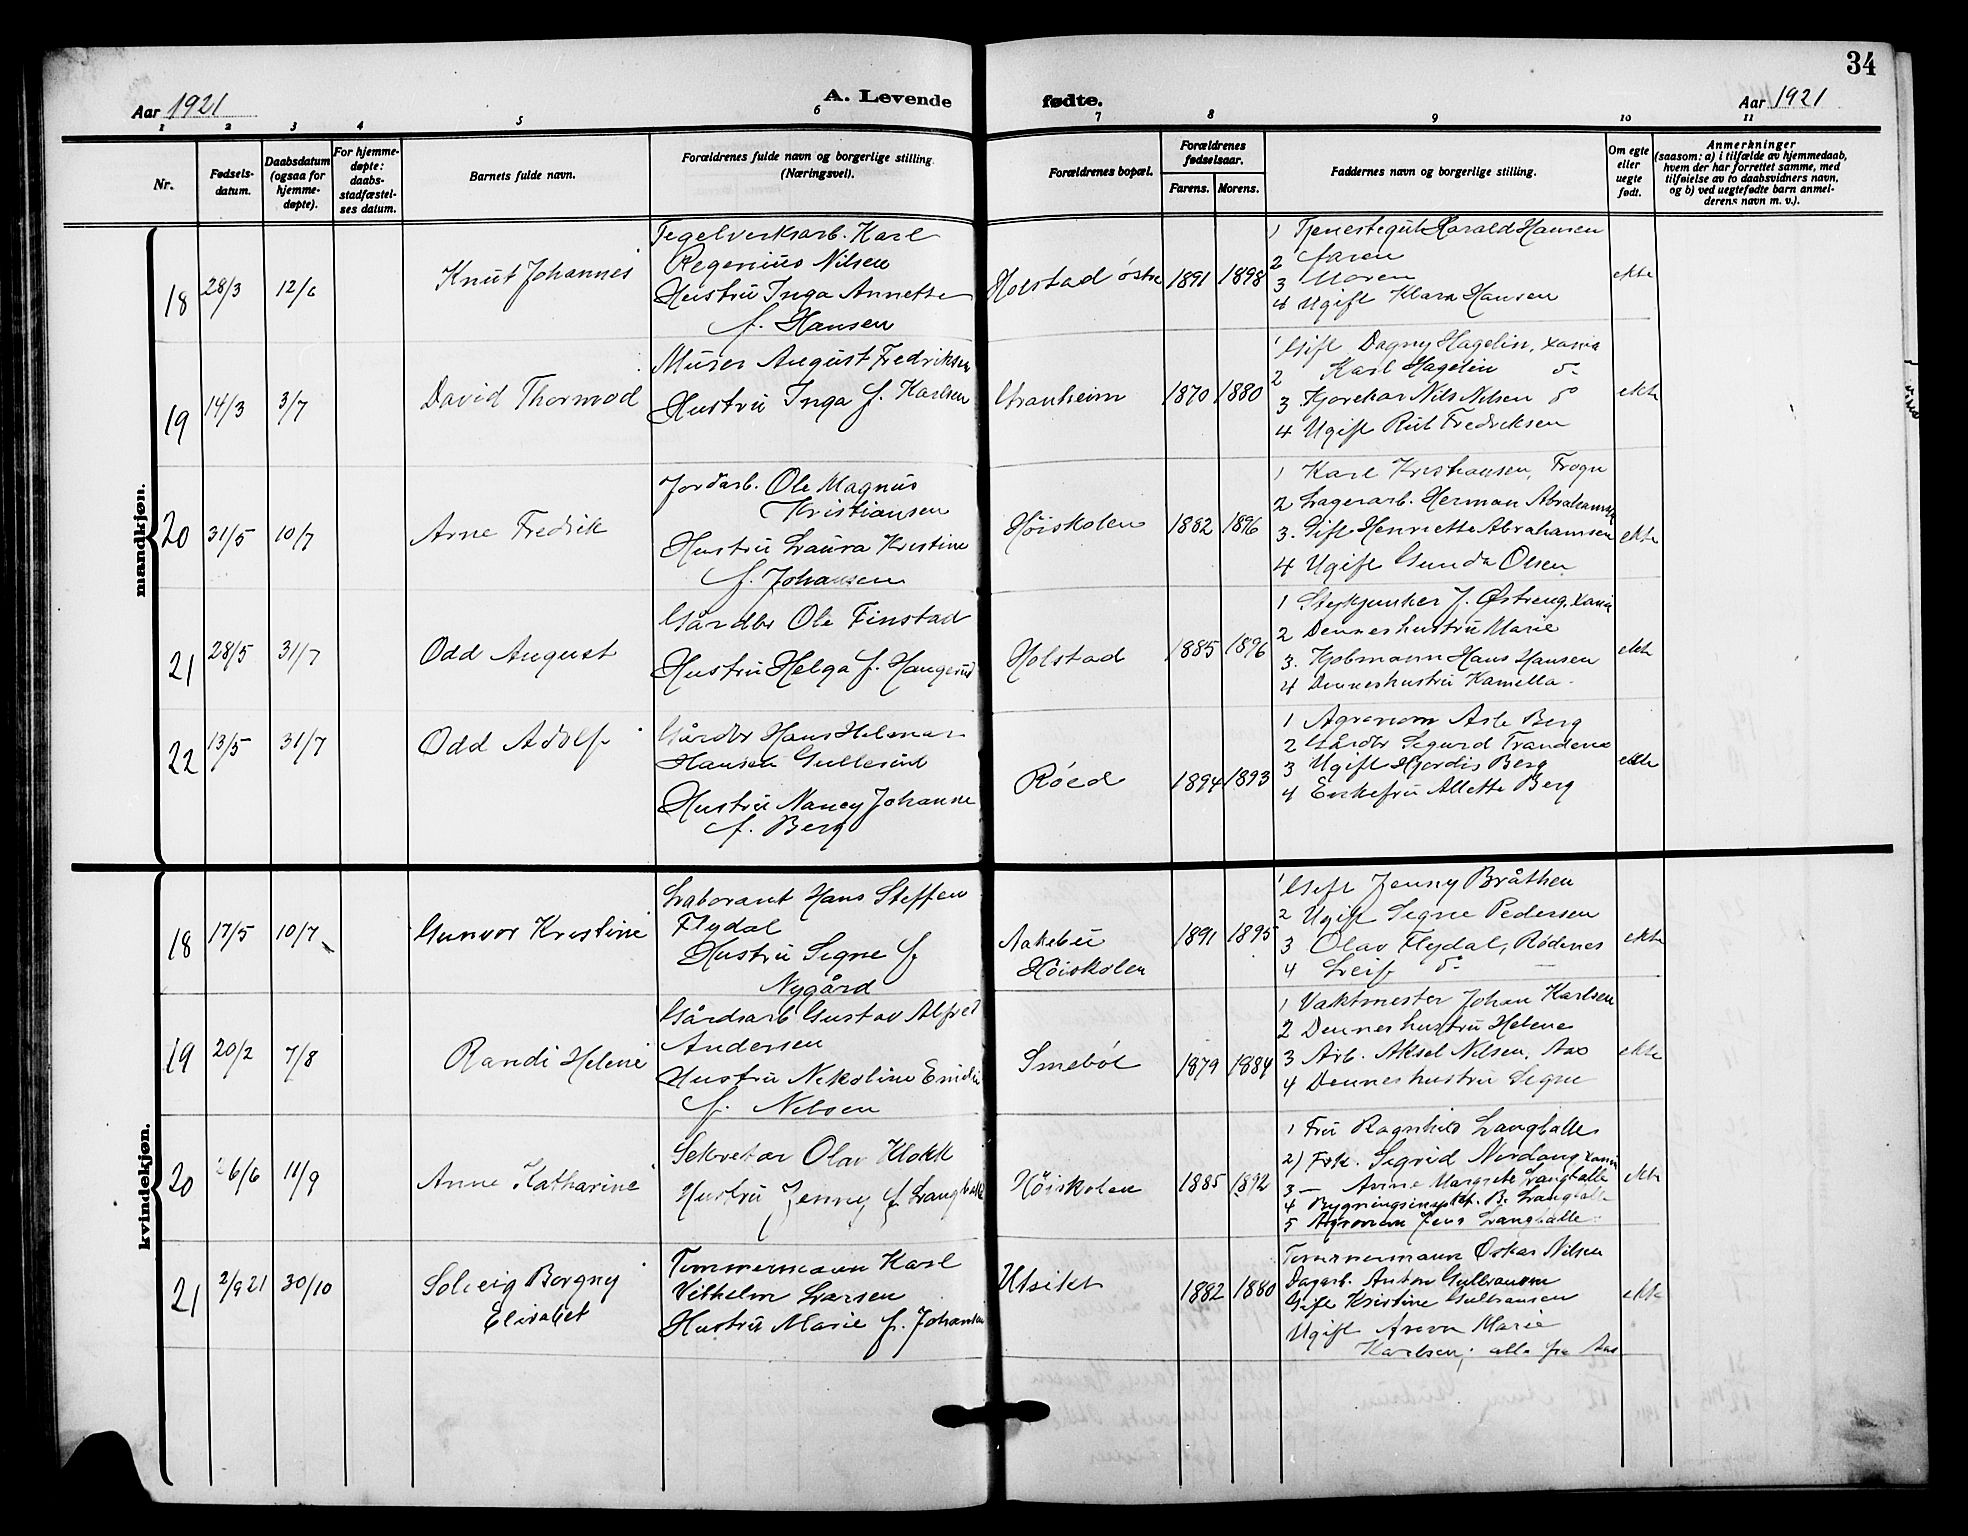 34
Aar 1921
A. Levende fødte.
Aar 1921
1 2 3 4 5 6 7 8 9 10 11
Nr.
Fødsels-
datum.
Daabsdatum
(ogsaa for
hjemme-
døpte).
For hjemme-
døpte:
daabs-
stadfæstel-
ses datum.
Barnets fulde navn.
Forældrenes fulde navn og borgerlige stilling.
(Næringsvei).
Forældrenes bopæl.
Forældrenes
fødselsaar.
Farens. Morens.
Faddernes navn og borgerlige stilling.
Om egte
eller
uegte
født.
Anmerkninger
(saasom: a) i tilfælde av hjemmedaab,
hvem der har forrettet samme, med
tilføielse av to daabsvidners navn,
og b) ved uegtefødte barn anmel-
derens navn m. v.).
mandkjøn.
18 28/3 12/6 Knut Johannes
Tegelverksarb. Karl
Regenius Nilsen
Hustru Inga Annette
f. Hansen
Holstad østre 1891 1898
1 Tjenestegut Harald Hansen
2 Faren
3 Moren
4 Ugift Klara Hansen
ekte
19 14/3 3/7 David Thormod
Murer August Fredriksen
Hustru Inga f. Karlsen
Granheim 1870 1880
1 Gift Dagny Hagelin, Xania
2 Karl Hagelin do
3 Nils Nilsen do
4 Ugift Rut Fredriksen
ekte
20 31/5 10/7 Arne Fredrik
Jordarb. Ole Magnus
Kristiansen
Hustru Laura Kristine
f. Johansen
Høiskolen 1882 1896
1 Karl Kristiansen, Frogn
2 Lagerarb. Herman Abrahamsen
3. Gift Henriette Abrahamsen
4 Ugift Gunda Olsen
ekte
21 28/5 31/7 Odd August
Gårdbr Ole Finstad
Hustru Helga f. Haugerud
Holstad 1885 1896
1 J. Østreng, Xania
2 Denneshustru Marie
3. Kjøbmann Hans Hansen
4 Denneshustru Kamella
ekte
22 13/5 31/7 Odd Adolf
Gårdbr Hans Helmer
Hansen Gullerud
Hustru Nancy Johanne
f. Berg
Røed 1894 1893
1 Agronom Asle Berg
2 Gårdbr Sigurd Trandem
3 Ugift Hjørdis Berg
4 Enkefru Allette Berg
ekte
kvindekjøn.
18 17/5 10/7 Gunvor Kristine
Laborant Hans Steffen
Flydal
Hustru Signe f
Nygård
Aakebu
Høiskolen
1891 1895
1 Gift Jenny Bråthen
2 Ugift Signe Pedersen
3 Olav Flydal, Rødenes
4 Leif do
ekte
19 20/2 7/8 Randi Helene
Gårdsarb Gustav Alfred
Andersen
Hustru Nikoline Emilie
f. Nilsen
Smebøl 1879 1884
1 Vaktmester Johan Karlsen
2 Denneshustru Helene
3 Arb. Aksel Nilsen, Aas
4 Denneshustru Signe
ekte
20 26/6 11/9 Anne Katharine
Sekretær Olav Klokk
Hustru Jenny f. Langballe
Høiskolen 1885 1892
1 Fru Ragnhild Langballe
2) Frk. Sigrid Nordang Xania
3 — Anne Margrete Langballe
4 Bygningsinspekt. B. Langballe
5 Agronom Jens Langballe
ekte
21 2/9 21 30/10 Solveig Borgny
Elisabet
Tømmermann Karl
Vilhelm Larsen
Hustru Marie f. Johansen
Utsikt 1882 1880
Tømmermann Oskar Nilsen
Dagarb. Anton Gulbransen
Gift Kristine Gulbransen
Ugift Anna Marie
Karlsen, alle fra Aas
ekte